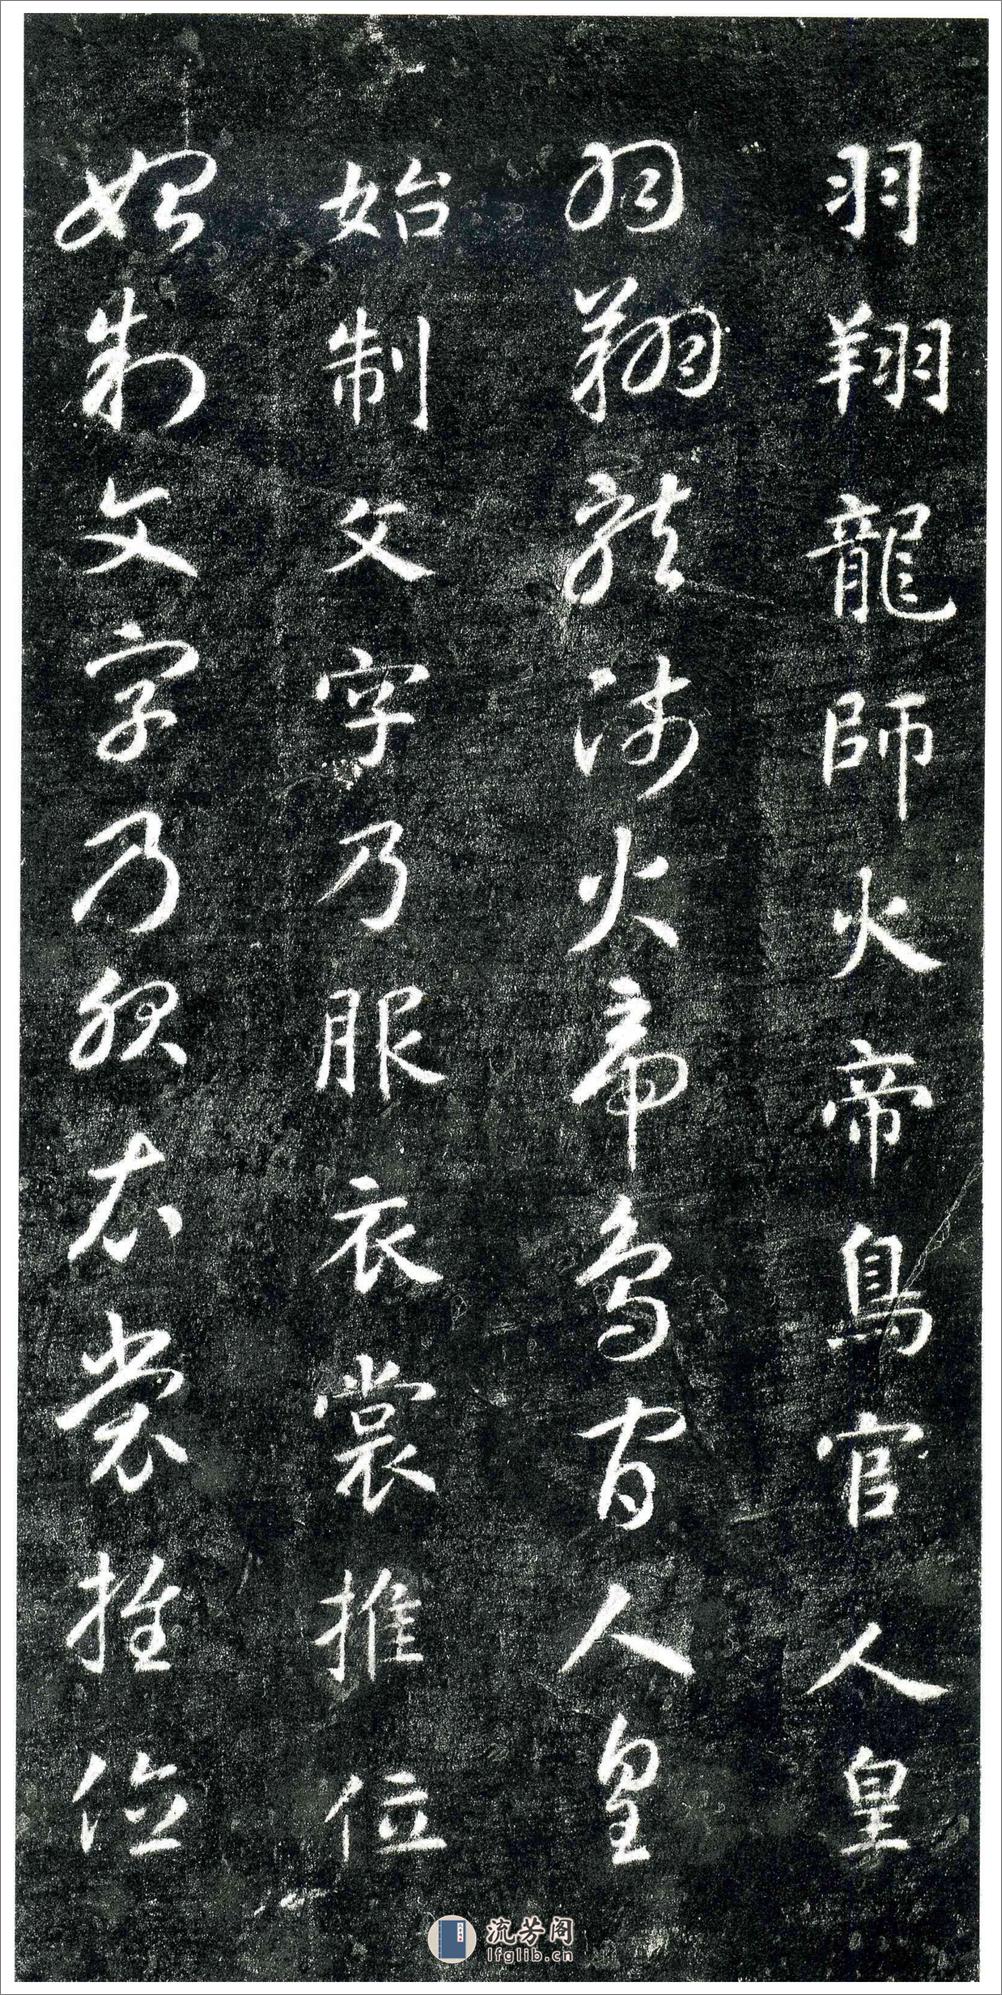 羽翔龍師火帝鳥官人皇
羽翔龍師火帝鳥官人皇
始制文字乃服衣裳推位
始制文字乃服衣裳推位
流芳阁
lfglib.cn